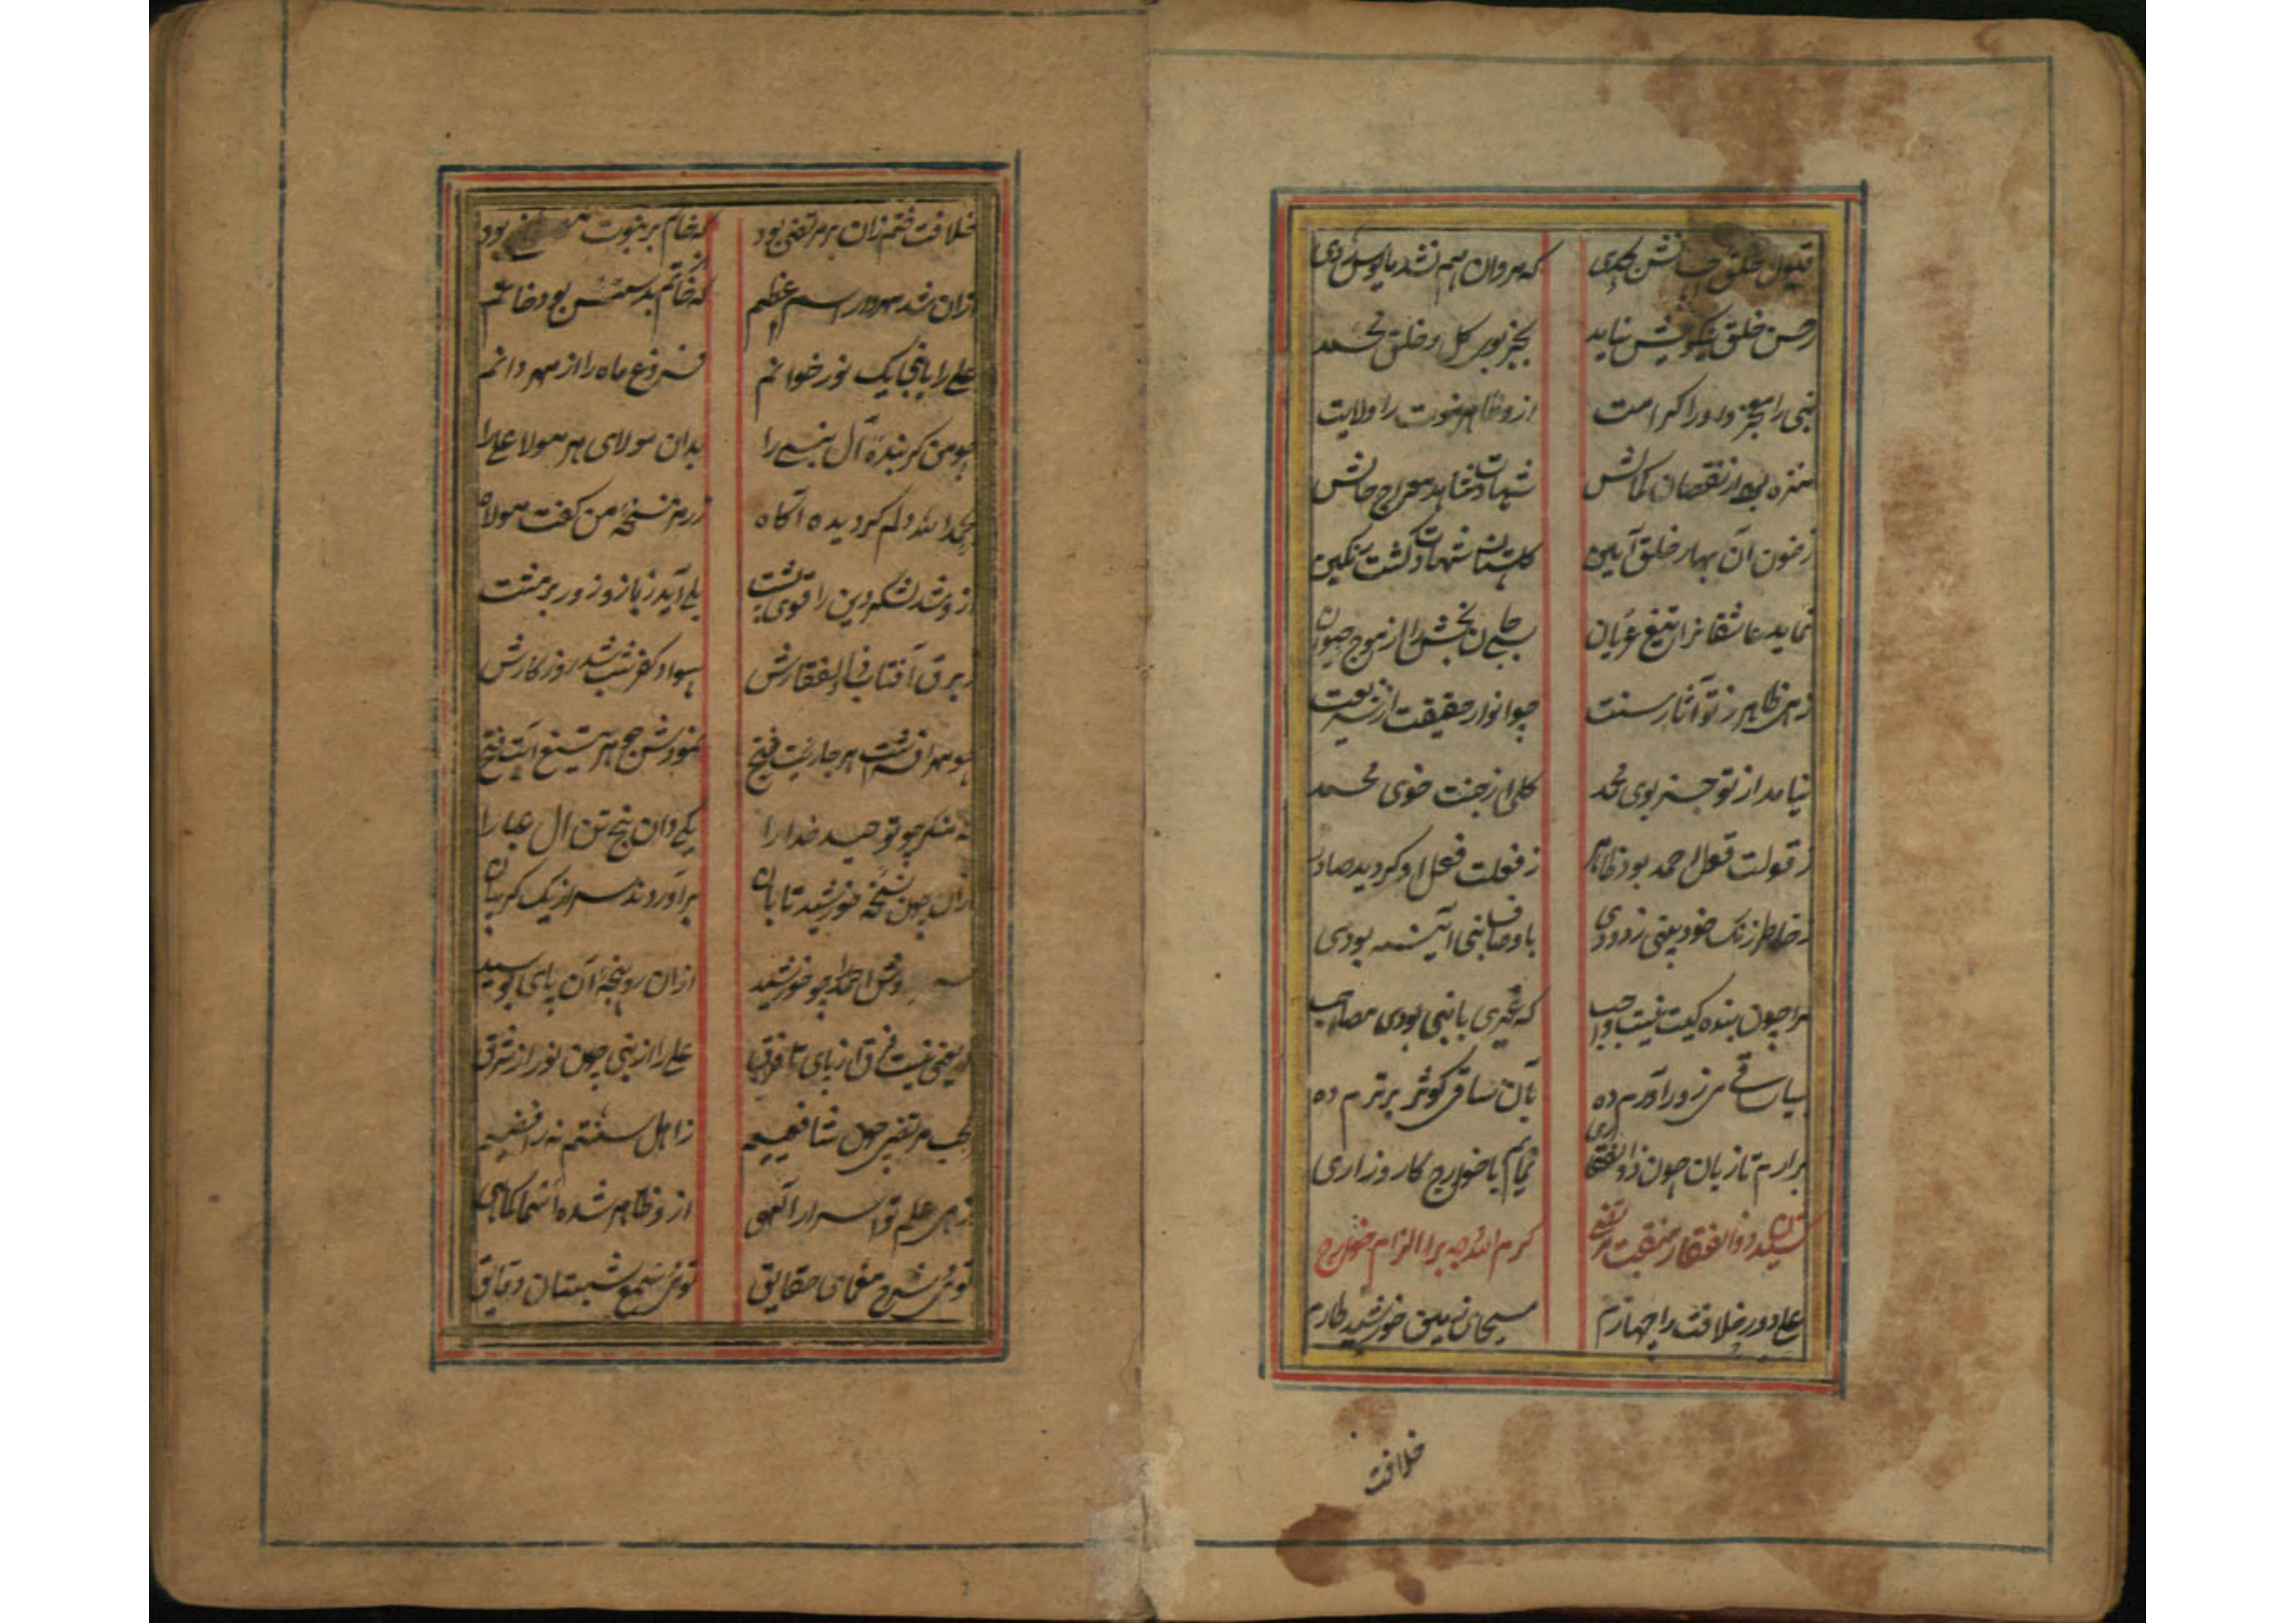 قبول خلق جانش بحدی که مروان هم نشد مایوس از وی
ز حسن خلق نیکویش نیاید بجز بوی گل و خلق محمد
نبی را معجز و او را کرامت ازو ظاهر نبوت را ولایت
منزه بود از نقصان کمالش شهادت شاهد معراج حالش
ز خون آن بهار خلق آیین گلستان شهادت گشت رنگین
نماید عاشقانرا تیغ عریان حیوان
زهی ظاهر ز تو آثار سنت چو انوار حقیقت از شریعت
نیامد از تو جز بوی محمد گلی از جنت خوی محمد
ز قولت قول احمد بود ظاهر ز فعلت فعل او گردید صادر
ز خاطر زنگ خود بینی زدودی باوصاف نبی آیینه بودی
مرا چون بنده کیت نیست واجب که عمری با نبی بودی مصاحب
بیا ساقی می زور آورم ده بآن ساقی کوثر برترم ده
برارم تا زبان چون ذوالفقاری نمایم با خوارج کارزاری
کشیدن ذوالفقار منقبت مرتضی کرم الله وجهه برا الزام خوارج
علی دور خلافت را چهارم مسیحای خورشید طارم
خلافت
خلافت ختم زان بر مرتضی بود که خاتم بر نبوت بود
ازان شد مهردار اسم اعظم که خاتم بد بود خاتم
علی را با نبی یک نور خوانم فروغ ماه را از مهر دانم
چو من گر بندهٔ آل نبی را بدان مولای هر مولا علی را
بحمدالله دلم گردیده آگاه ز رمز نسخهٔ من کنت مولاه
ازو شد لشکر دین را قوی پشت بلی آید ز بازو زور بر مشت
ز برق آفتاب ذوالفقارش سواد کفر شب شد روزگارش
چو مهر افراشت هر جا رایت فتح نمودش صبح هر تیغ آیت فتح
نه منکر چو توحید خدا را یکی دان پنج تن آل عبا را
ازان چون نسخه خورشید تابان برآوردند سر از یک گریبان
دوش احمد چو خورشید ازان رو پنجهٔ آن پای بوسید
که یعنی نیست فرق از پای تا فرق علی را از نبی چون نور از شرق
بحب مرتضی چون شافعیم ز اهل سنتم نه رافضیم
زهی علم تو اسرار الهی ازو ظاهر شده اشیا کماهی
توئی شرح معمای حقایق توئی شمع شبستان دقایق